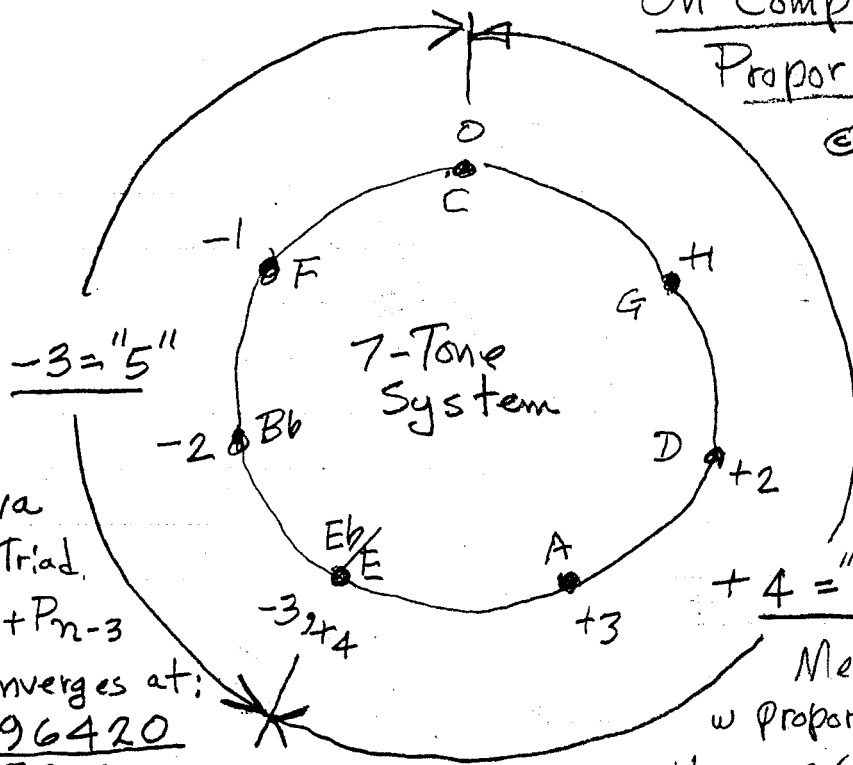 On Comp
Propor
©
0
C
-1
F
+1
G
-3="5"
7-Tone
System
-2
Bb
D
+2
Eb/
E
A
-3,+4
+3
Triad.
+Pn-3
nverges at:
96420
+4="
Me
w propor